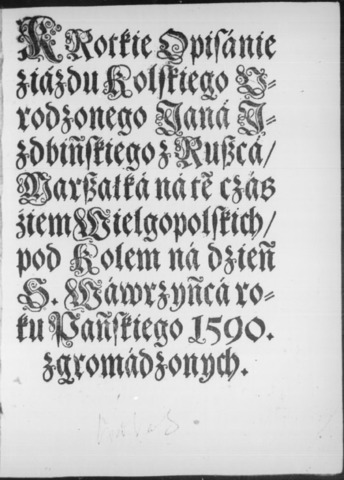 KRotkie Opisánie
ziázdu Kolskiego V-
rodzonego Janá J-
zdbińskiego z Rußcá/
Marßałká ná tẽ czás
ziem Wielgopolskich/
pod Kolem ná dzień
S. Wáwrzyńcá ro-
ku Pańskiego 1590.
zgromádzonych.